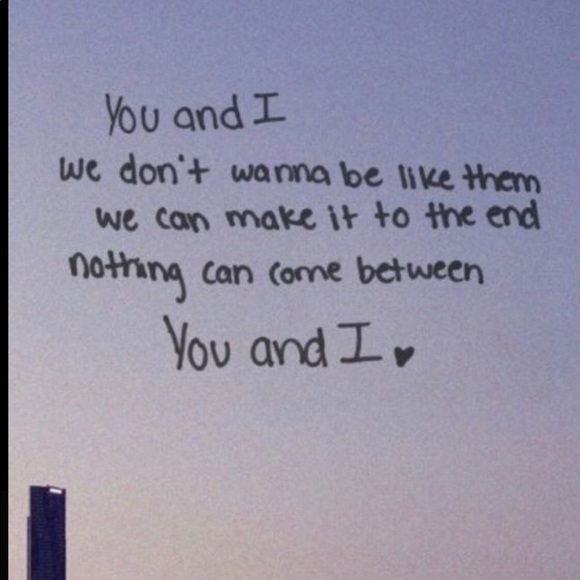 You and I
we don't wanna be like them
we can make it to the end
nothing can come between
You and I ♥